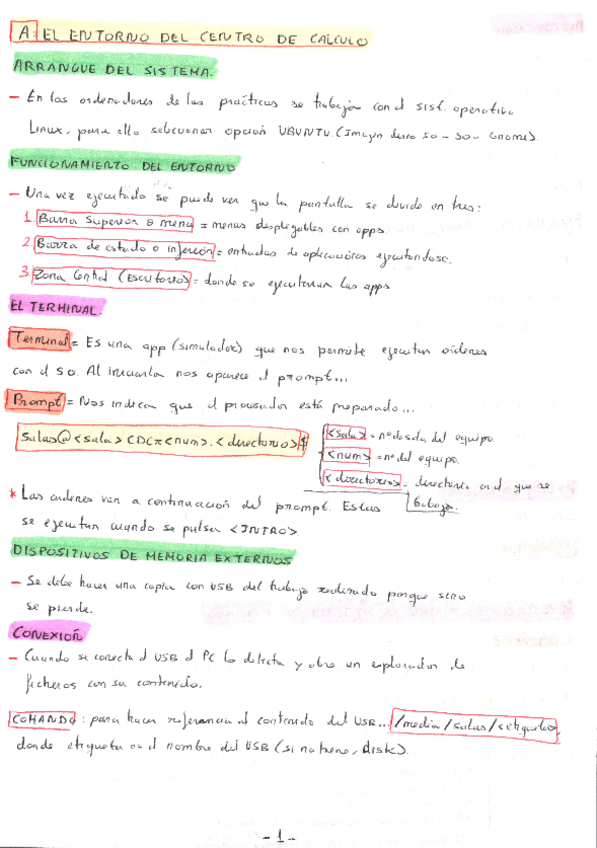 A EL ENTORNO DEL CENTRO DE CALCULO
ARRANQUE DEL SISTEMA.
- En los ordenadores de las prácticas se trabaja con el sist. operativo
Linux, para ello seleccionar opción UBUNTU. (Imagen disco SO - SO - Gnome).
FUNCIONAMIENTO DEL ENTORNO
- Una vez ejecutado se puede ver que la pantalla se divide en tres:
1. Barra Superior o menú = menus desplegables con apps.
2. Barra de estado o inferior = entradas de aplicaciones ejecutándose.
3 Zona Central (Escritorio) = donde se ejecutarán las apps
EL TERMINAL.
Terminal = Es una app (simulador) que nos permite ejecutar ordenes
con el SO. Al iniciarla nos aparece el prompt...
Prompt = Nos indica que el procesador está preparado...
Salas@<sala>CDC<num>:<directorio>$
<sala> = nº de sala del equipo.
<num> = nº del equipo.
<directorio> = directorio en el que se
trabaja.
* Las ordenes van a continuación del prompt. Estas
se ejecutan cuando se pulsa <INTRO>.
DISPOSITIVOS DE MEMORIA EXTERNOS
- Se debe hacer una copia con USB del trabajo realizado porque sino
se pierde.
CONEXIÓN
- Cuando se conecta el USB el PC lo detecta y abre un explorador de
ficheros con su contenido.
COMANDO: para hacer referencia al contenido del USB... /media/salas/<etiqueta>,
donde etiqueta es el nombre del USB (si no tiene, Disk).
- 1 -